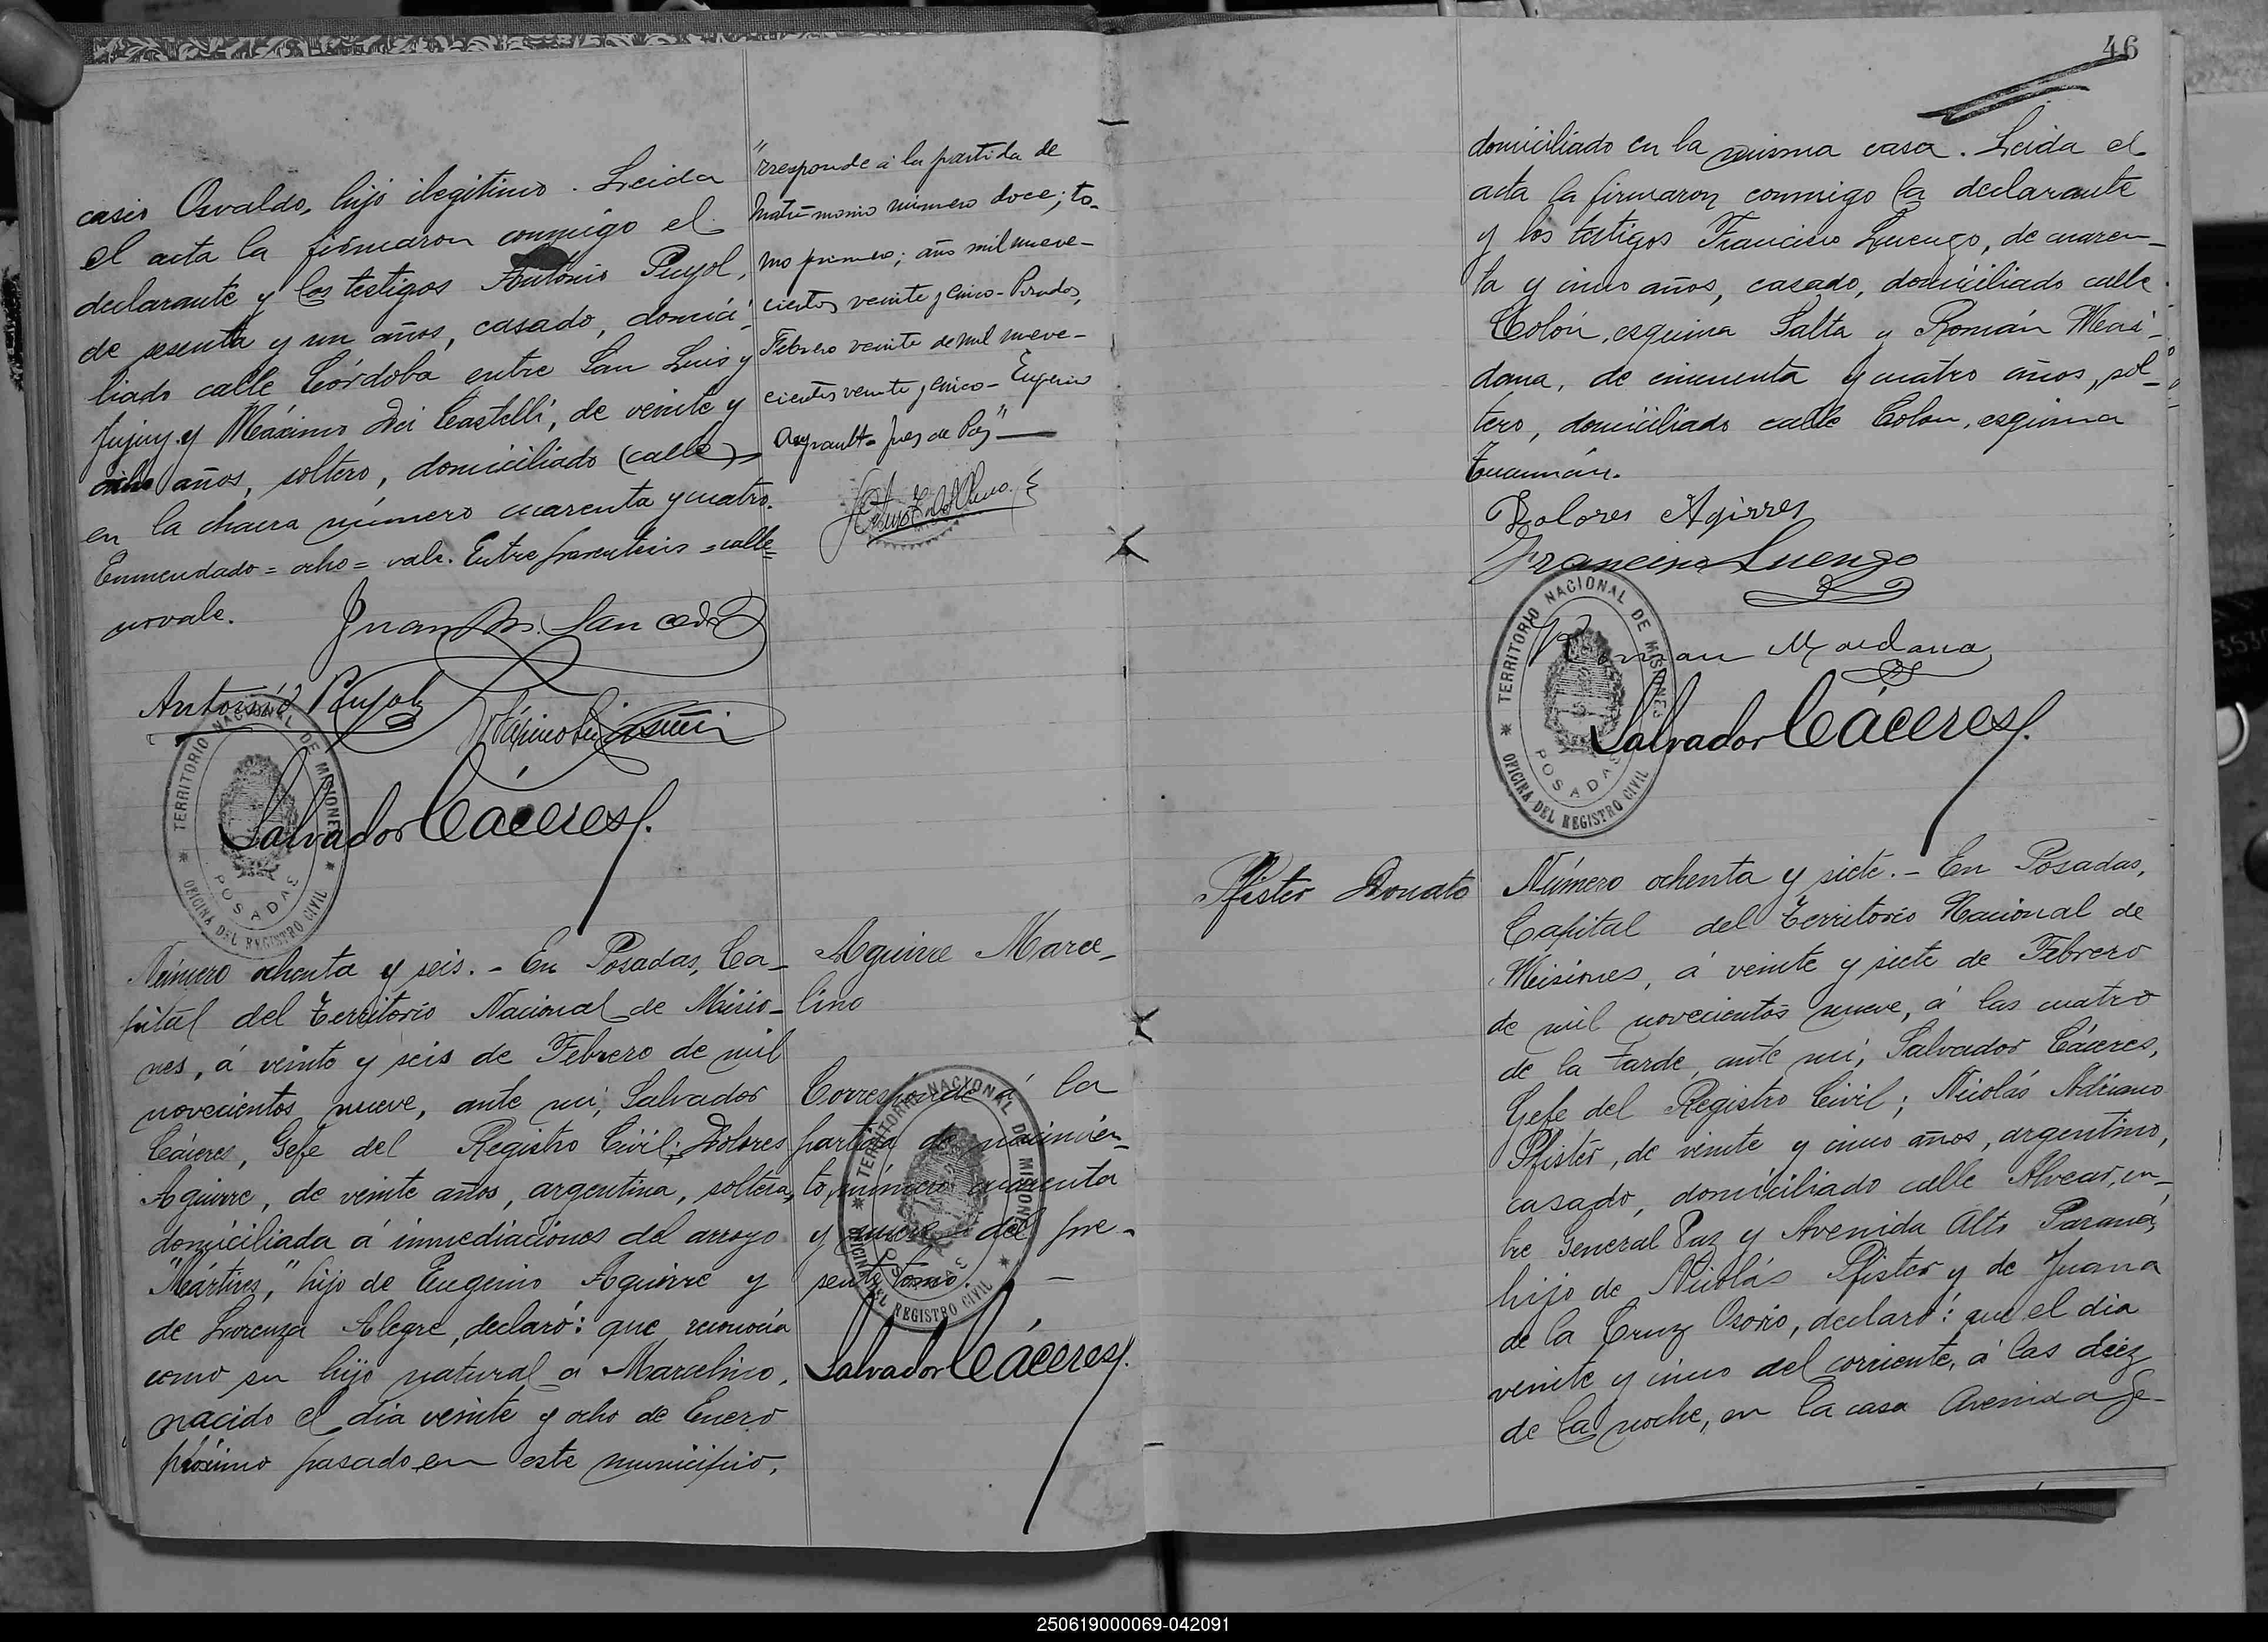 casio Osvaldo, hijo ilegítimo. Leida
el acta la firmaron conmigo el
declarante y los testigos Antonio Puyol,
de sesenta y un años, casado, domici-
liado calle Córdoba entre San Luis y
Jujuy y Máximo Dei Castelli, de veinte y
ocho años, soltero, domiciliado (calle)
en la chacra número cuarenta y cuatro.
Enmendado = ocho = vale. Entre parentesis = calle =
no vale.
Antonio Puyol
Salvador Cáceres
TERRITORIO NACIONAL DE MISIONES
POSADAS
OFICINA DEL REGISTRO CIVIL
"rresponde á la partida de
Matrimonio número doce; to-
mo primero; año mil nueve-
cientos veinte y cinco - Posadas,
Febrero veinte de mil nueve-
cientos veinte y cinco - Eugenio
Juez de Paz"
Número ochenta y seis. - En Posadas, Ca-
pital del Territorio Nacional de Misio-
nes, á veinte y seis de Febrero de mil
novecientos nueve, ante mí, Salvador
Cáceres, Gefe del Registro Civil; Dolores
Aguirre, de veinte años, argentina, soltera,
domiciliada á inmediaciones del arroyo
"Mártires," hijo de Eugenio Aguirre y
de Lorenza Alegre, declaró: que reconocía
como su hijo natural á Marcelino,
nacido el día veinte y ocho de Enero
próximo pasado en este municipio,
Aguirre Marce-
lino
Corresponde á la
partida de nacimien-
to número cuarenta
y nueve del pre-
sente tomo. —
TERRITORIO NACIONAL DE MISIONES
POSADAS
OFICINA DEL REGISTRO CIVIL
Salvador Cáceres
46
domiciliado en la misma casa. Leida el
acta la firmaron conmigo la declarante
y los testigos Francisco Luengo, de cuaren-
ta y cinco años, casado, domiciliado calle
Colón, esquina Salta y Román Maci-
dana, de cincuenta y cuatro años, sol-
tero, domiciliado calle Colon, esquina
Tucumán.
Dolores Agirres
Francisco Luengo
Roman Maidana
Salvador Cáceres
TERRITORIO NACIONAL DE MISIONES
POSADAS
OFICINA DEL REGISTRO CIVIL
Pfister Donato
Número ochenta y siete. - En Posadas,
Capital del Territorio Nacional de
Misiones, á veinte y siete de Febrero
de mil novecientos nueve, á las cuatro
de la tarde, ante mí, Salvador Cáceres,
Gefe del Registro Civil; Nicolás Adriano
Pfister, de veinte y cinco años, argentino,
casado, domiciliado calle Alvear, en-
tre General Paz y Avenida Alto Paraná,
hijo de Nicolás Pfister y de Juana
de la Cruz Osorio, declaró: que el día
veinte y cinco del corriente, á las diez
de la noche, en la casa Avenida Ge-
250619000069-042091